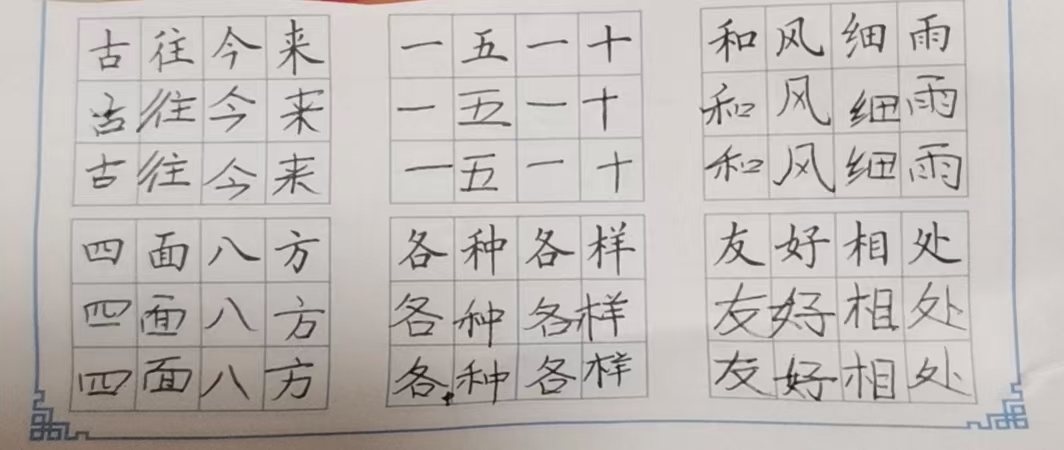 古往今来 一五一十 和风细雨
古往今来 一五一十 和风细雨
古往今来 一五一十 和风细雨
四面八方 各种各样 友好相处
四面八方 各种各样 友好相处
四面八方 各种各样 友好相处